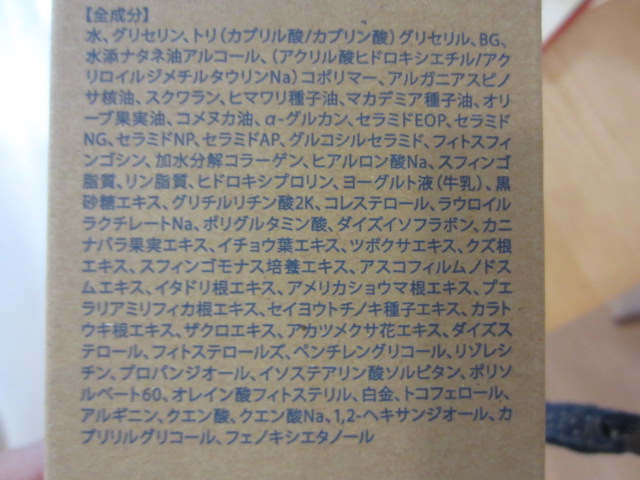 【全成分】
水、グリセリン、トリ(カプリル酸/カプリン酸)グリセリル、BG、
水添ナタネ油アルコール、(アクリル酸ヒドロキシエチル/アク
リロイルジメチルタウリンNa)コポリマー、アルガニアスピノ
サ核油、スクワラン、ヒマワリ種子油、マカデミア種子油、オリ
ーブ果実油、コメヌカ油、α-グルカン、セラミドEOP、セラミド
NG、セラミドNP、セラミドAP、グルコシルセラミド、フィトスフィ
ンゴシン、加水分解コラーゲン、ヒアルロン酸Na、スフィンゴ
脂質、リン脂質、ヒドロキシプロリン、ヨーグルト液(牛乳)、黒
砂糖エキス、グリチルリチン酸2K、コレステロール、ラウロイル
ラクチレートNa、ポリグルタミン酸、ダイズイソフラボン、カニ
ナバラ果実エキス、イチョウ葉エキス、ツボクサエキス、クズ根
エキス、スフィンゴモナス培養エキス、アスコフィルムノドス
ムエキス、イタドリ根エキス、アメリカショウマ根エキス、プエ
ラリアミリフィカ根エキス、セイヨウトチノキ種子エキス、カラト
ウキ根エキス、ザクロエキス、アカツメクサ花エキス、ダイズス
テロール、フィトステロールズ、ペンチレングリコール、リゾレシ
チン、プロパンジオール、イソステアリン酸ソルビタン、ポリソ
ルベート60、オレイン酸フィトステリル、白金、トコフェロール、
アルギニン、クエン酸、クエン酸Na、1,2-ヘキサンジオール、カ
プリリルグリコール、フェノキシエタノール